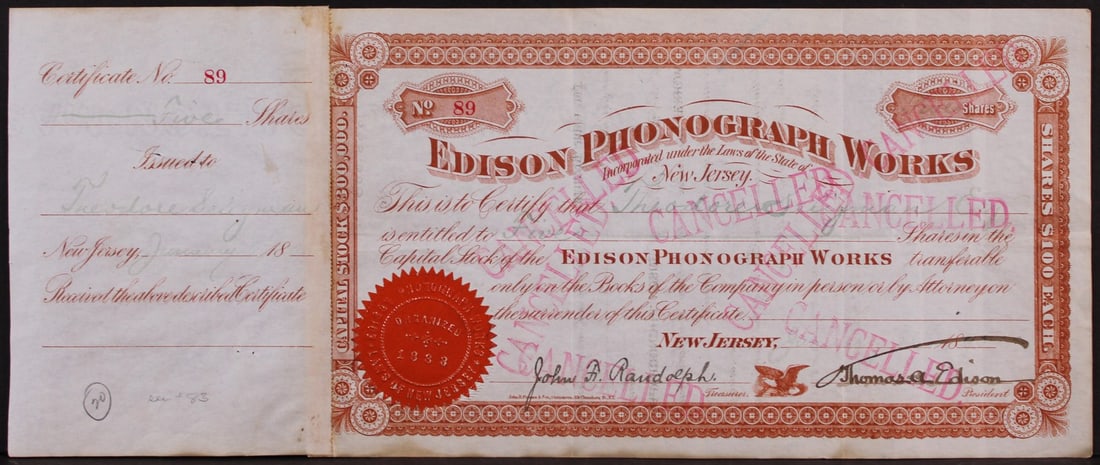 Certificate No. 89
Five Shares
Issued to
Theodore Seligman
New Jersey, January 18
Received the above described Certificate
20
see #83
CAPITAL STOCK $300,000.
No 89
Shares
EDISON PHONOGRAPH WORKS
Incorporated under the Laws of the State of
New Jersey.
This is to Certify that Theodore Seligman Esq.
is entitled to Five Shares in the
Capital Stock of the EDISON PHONOGRAPH WORKS transferable
only on the Books of the Company in person or by Attorney on
the surrender of this Certificate.
NEW JERSEY, 18
John F. Randolph. Treasurer.
Thomas A. Edison President
SHARES $100 EACH.
EDISON PHONOGRAPH WORKS
ORGANIZED
1888
NEW JERSEY
CANCELLED
CANCELLED
CANCELLED
CANCELLED
CANCELLED
CANCELLED
CANCELLED
CANCELLED
CANCELLED